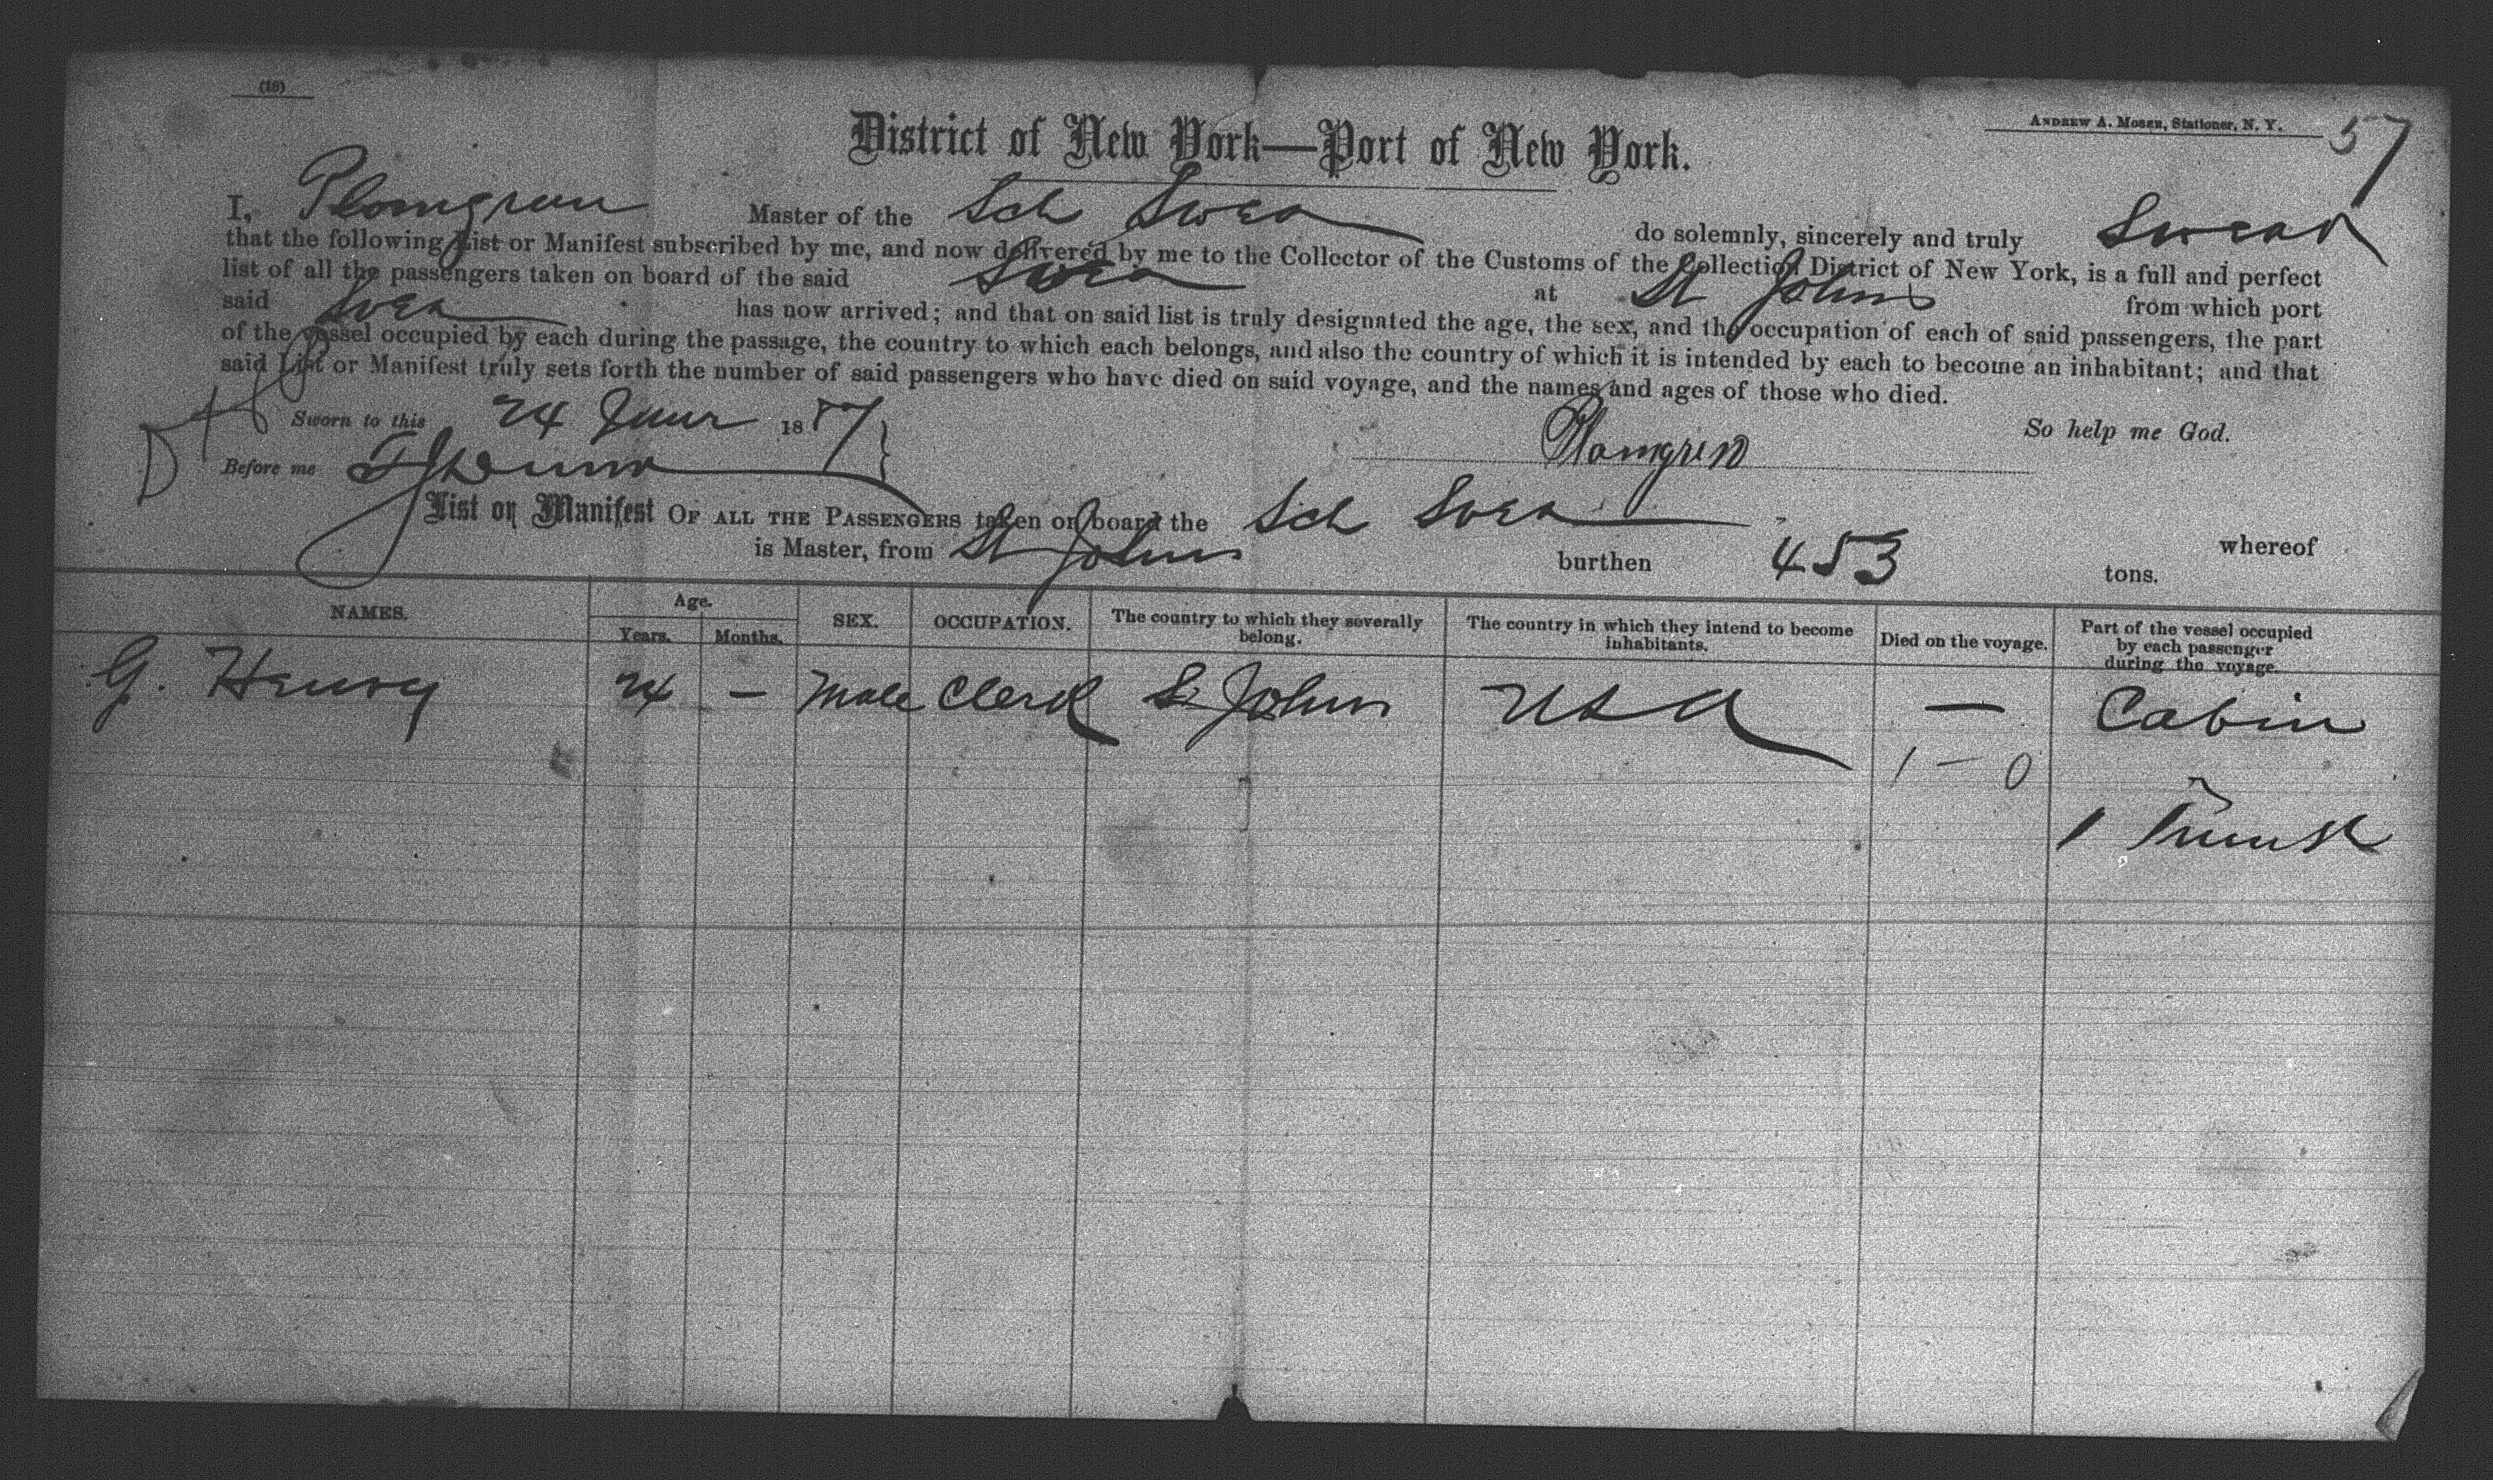 (18)
ANDREW A. MOSER, Stationer, N. Y.
57
District of New York—Port of New York.
I, Plomgren Master of the Sch Svea do solemnly, sincerely and truly Swear
that the following List or Manifest subscribed by me, and now delivered by me to the Collector of the Customs of the Collection District of New York, is a full and perfect
list of all the passengers taken on board of the said Svea at St Johns from which port
said Svea has now arrived; and that on said list is truly designated the age, the sex, and the occupation of each of said passengers, the part
of the vessel occupied by each during the passage, the country to which each belongs, and also the country of which it is intended by each to become an inhabitant; and that
said List or Manifest truly sets forth the number of said passengers who have died on said voyage, and the names and ages of those who died.
So help me God.
Sworn to this 24 1887
Plomgren
Before me
List or Manifest OF ALL THE PASSENGERS taken on board the Sch Svea whereof
is Master, from St Johns burthen 453 tons.
NAMES. Age. Years. Months. SEX. OCCUPATION. The country to which they severally belong. The country in which they intend to become inhabitants. Died on the voyage. Part of the vessel occupied by each passenger during the voyage.
G. Henvey 24 — Male Clerk St Johns USA — Cabin
1 — 0
1 Trunk